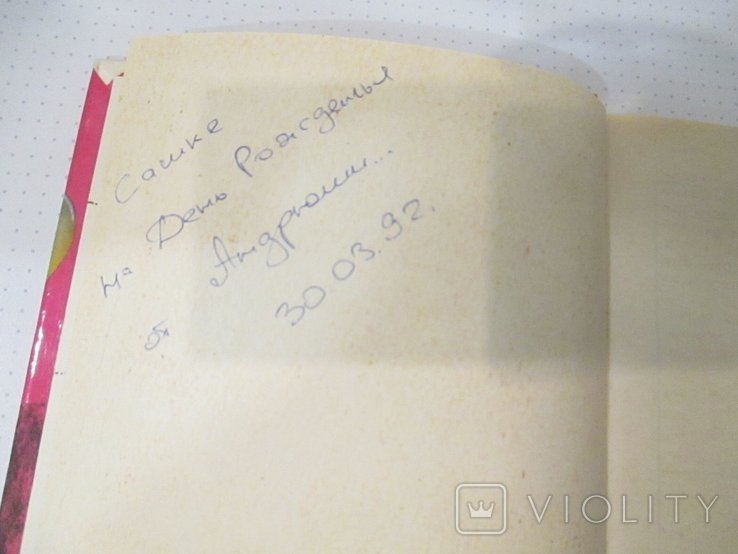 Сашке
на День Рожденья
от Андрюши...
30.03.92.
VIOLITY